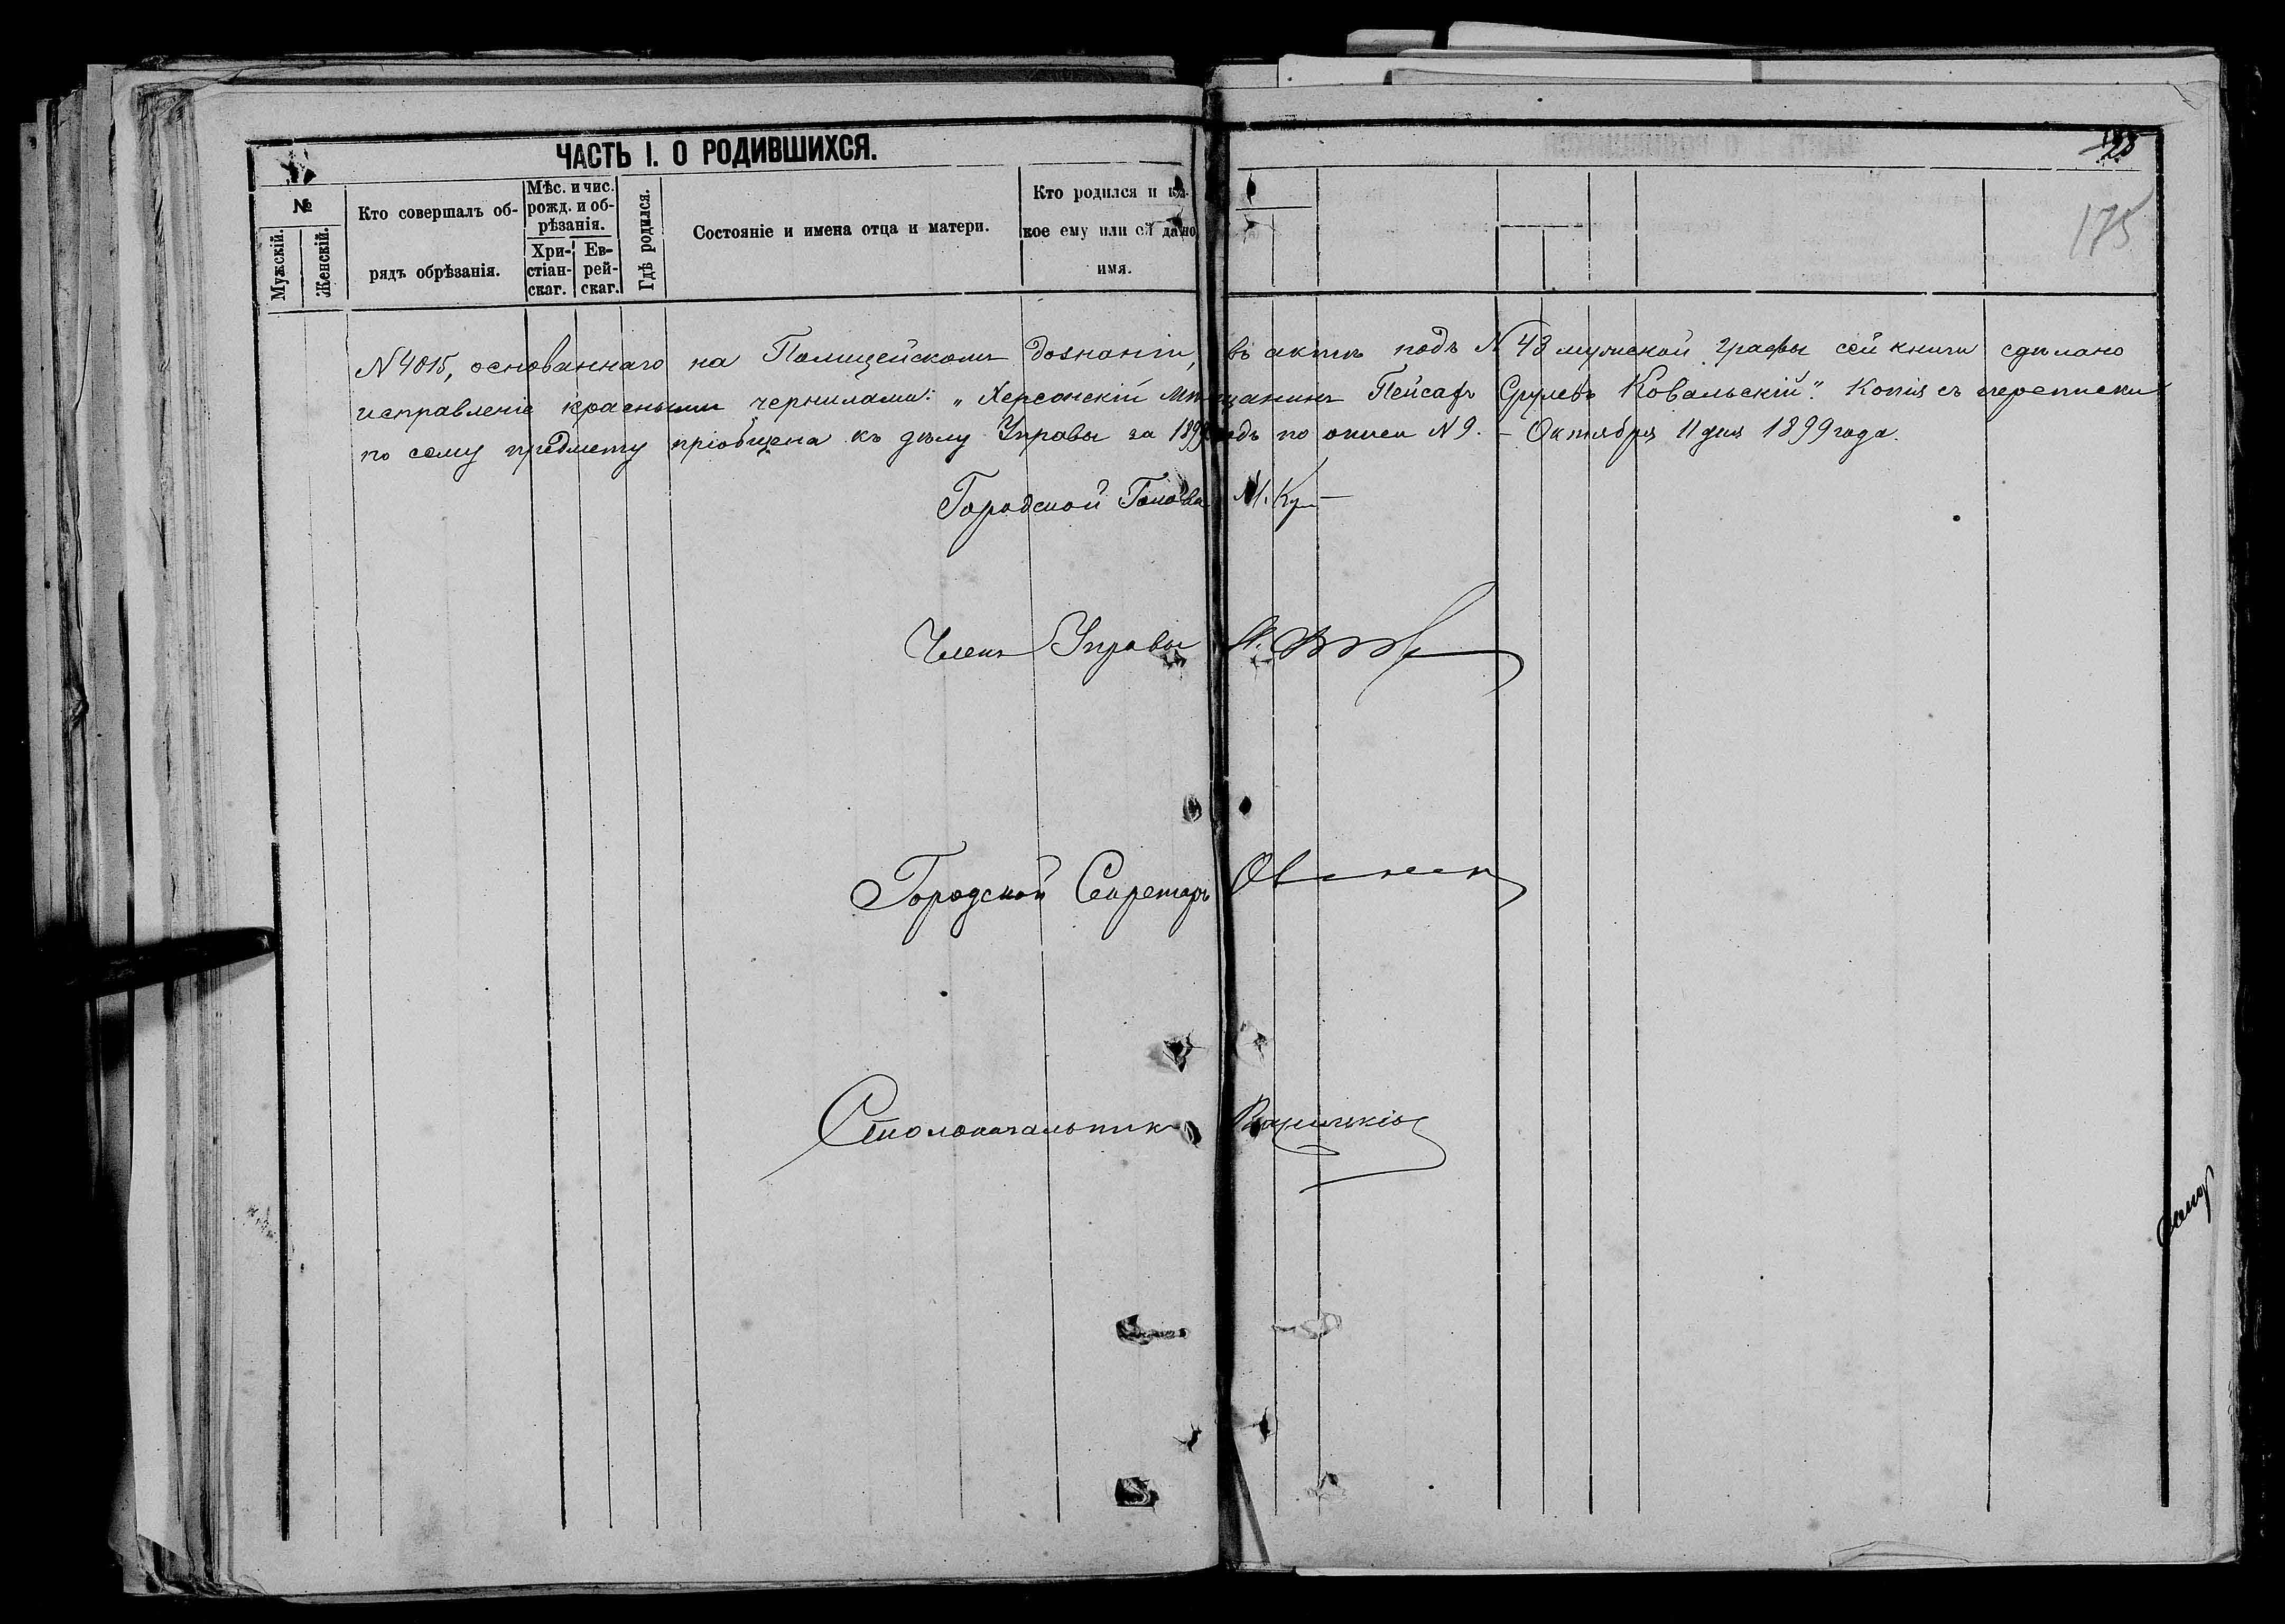 ЧАСТЬ I. О РОДИВШИХСЯ.
28
175
№
Мужскій.
Женскій.
Кто совершалъ об-
рядъ обрѣзанія.
Мѣс. и чис.
рожд. и об-
рѣзанія.
Хри-
стіан-
скаг.
Ев-
рей-
скаг.
Гдѣ родился.
Состояніе и имена отца и матери.
Кто родился и ка-
кое ему или ей дано
имя.
N 4015, основаннаго на Полицейскомъ дознаніи, въ актѣ подъ N 43 мужской графы сей книги сдѣлано
исправленіе красными чернилами: „Херсонскій мѣщанинъ Пейсахъ Срулевъ Ковальскій“. Копія съ переписки
по сему предмету пріобщена къ дѣлу Управы за 1899 годъ по описи N 9. – Октября 11 дня 1899 года.
Городской Голова М.
Членъ Управы
Городской Секретарь
Столоначальникъ